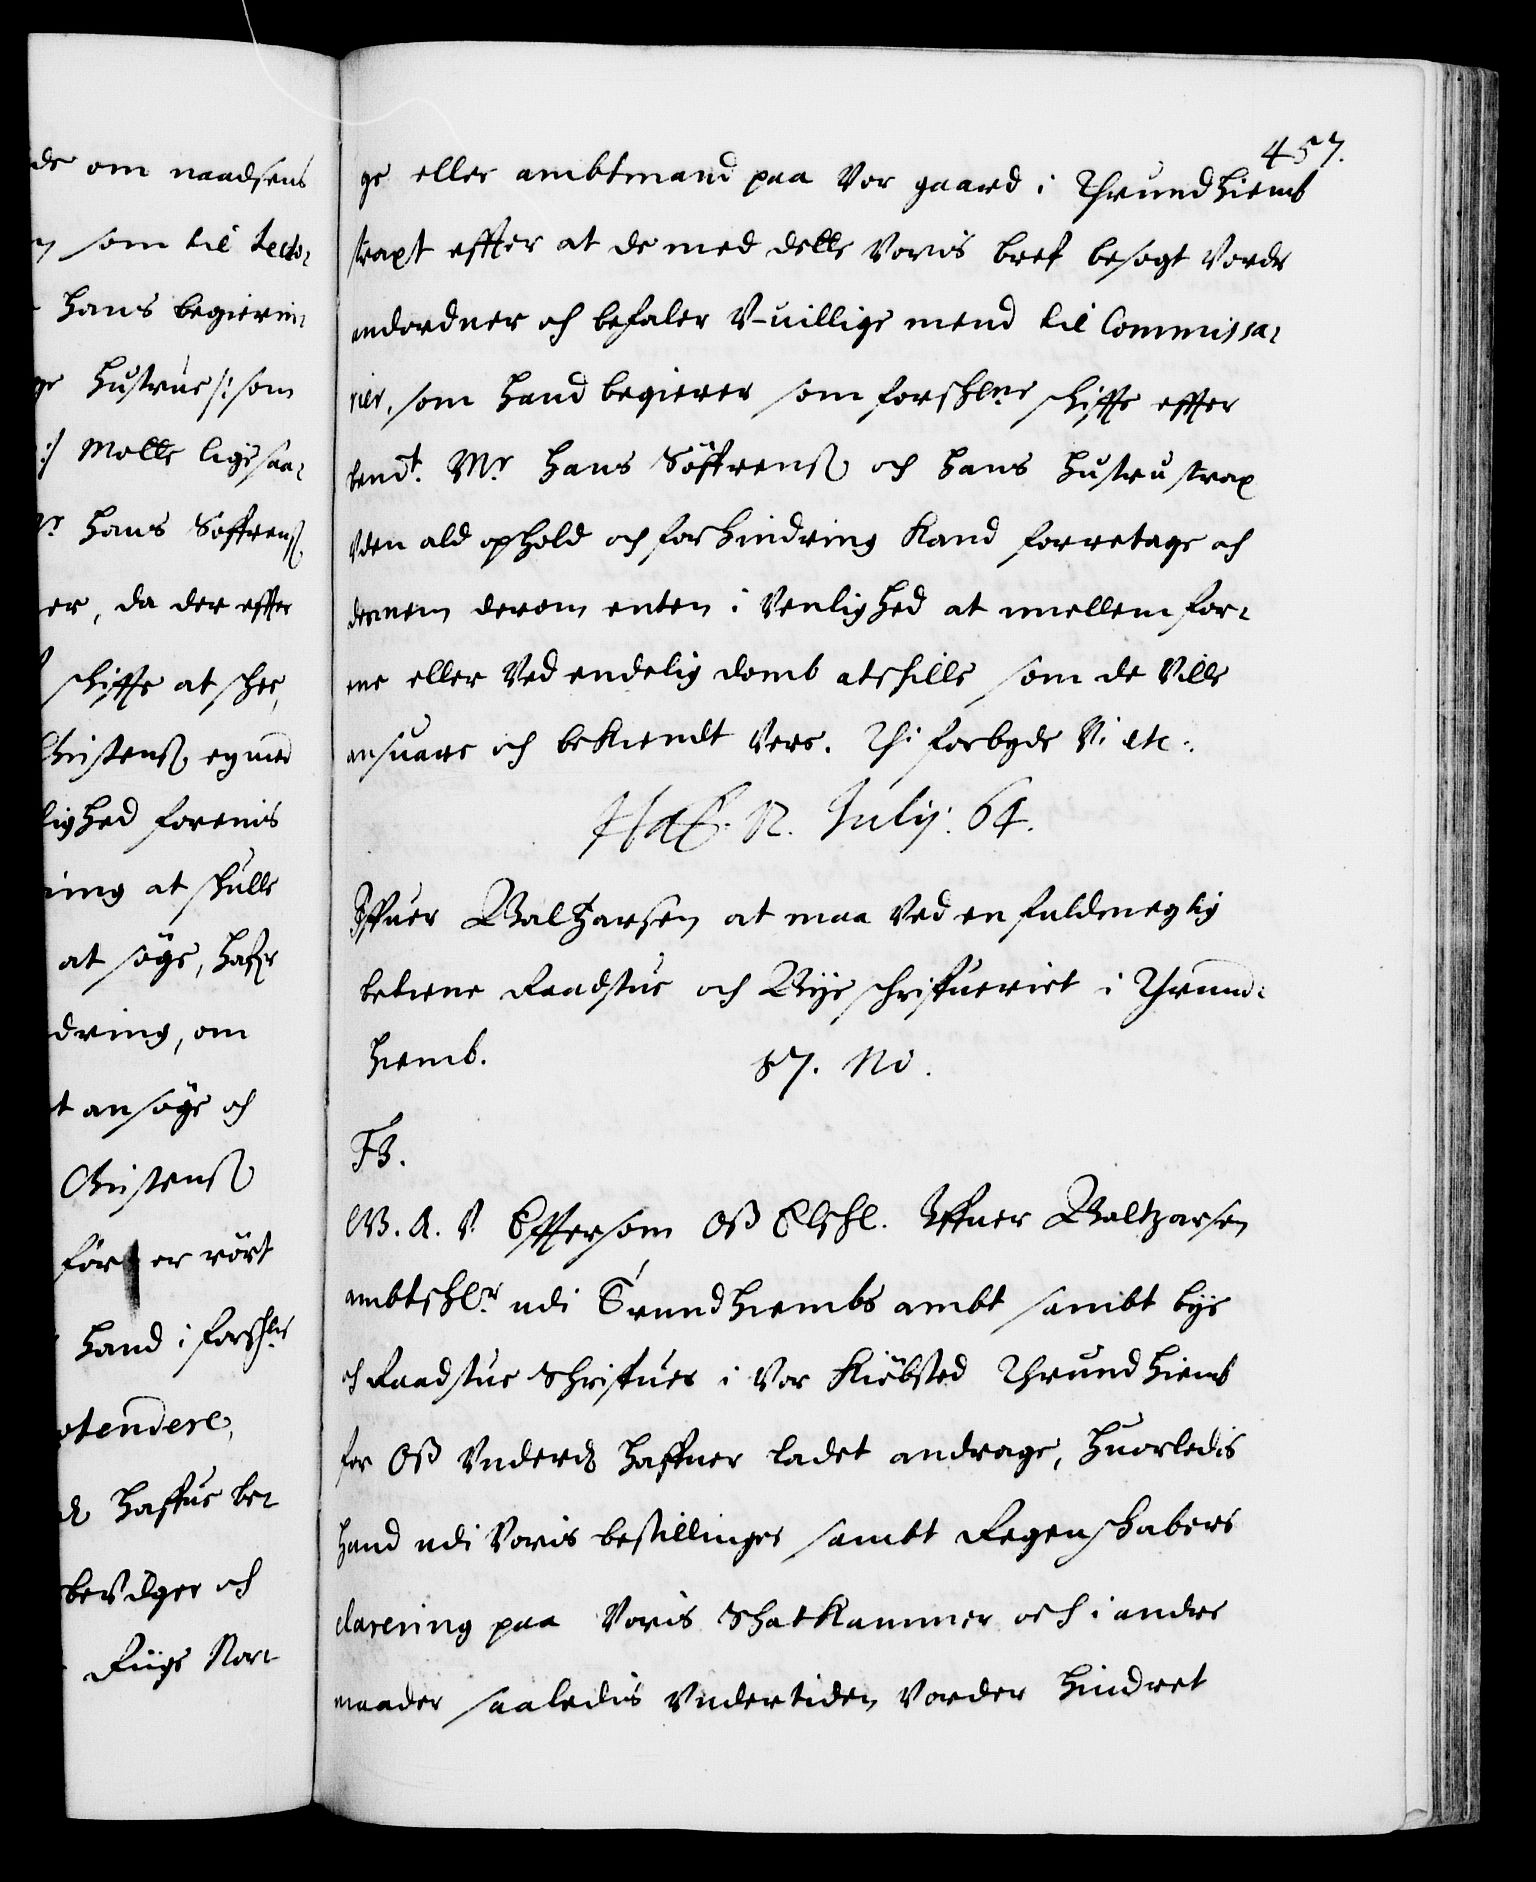 de om naadsens
som til Lecto-
hans begierin-
ge hustrue /: som
:/ Molle ligesaa-
Mr hans Søffrenß
er, da der effter
schiffte at schee,
Christenß egmed
lighed forenis
ing at schulle
at søge, hafr
dring, om
t ansøge och
Christenß
før er rørt
hand i forschne
otendere,
haffue be-
bevilger och
Riigs Nor-
457.
ge eller ambtmand paa Vor gaard i Thrundhiemb
straxt effter at de med dette Voris bref besøgt Vorde
andordner och befaler V-uillige mend til Commissa-
rier, som hand begierer som forschne schiffte effter
bendt Mr hans Söffrenß och hans hustru strax
Vden ald ophold och forhindring Kand forretage och
dennem derom enten i Venlighed at imellem for-
ene eller Ved endelig domb atschille som de Ville
ansuare och bekiendt Vere. Thi forbyde Vi etc:
Haf. 12. Julij. 64.
Iffuer Baltzarsen at maa Ved en fuldmegtig
betiene Raadstue och Bye schriffueriet i Thrund-
hiemb. 57. No.
F3.
W. A. V. Efftersom Oß Elschl. Iffuer Baltzarsen
ambtschr udi Trundhiembs ambt sambt bye
och Raadstue Schriffuer i Vor Kiöbsted Thrundhiemb
for Oß Vnderd haffuer ladet andrage, huorledis
hand udi Voris bestillinger sambt Regenschabers
clarering paa Voris Schatkammer och i andre
maader saaledis Vndertiden Vorder hindret